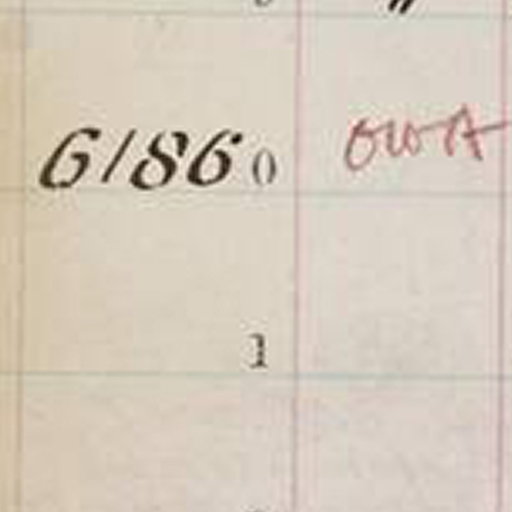 61860 OWA
1